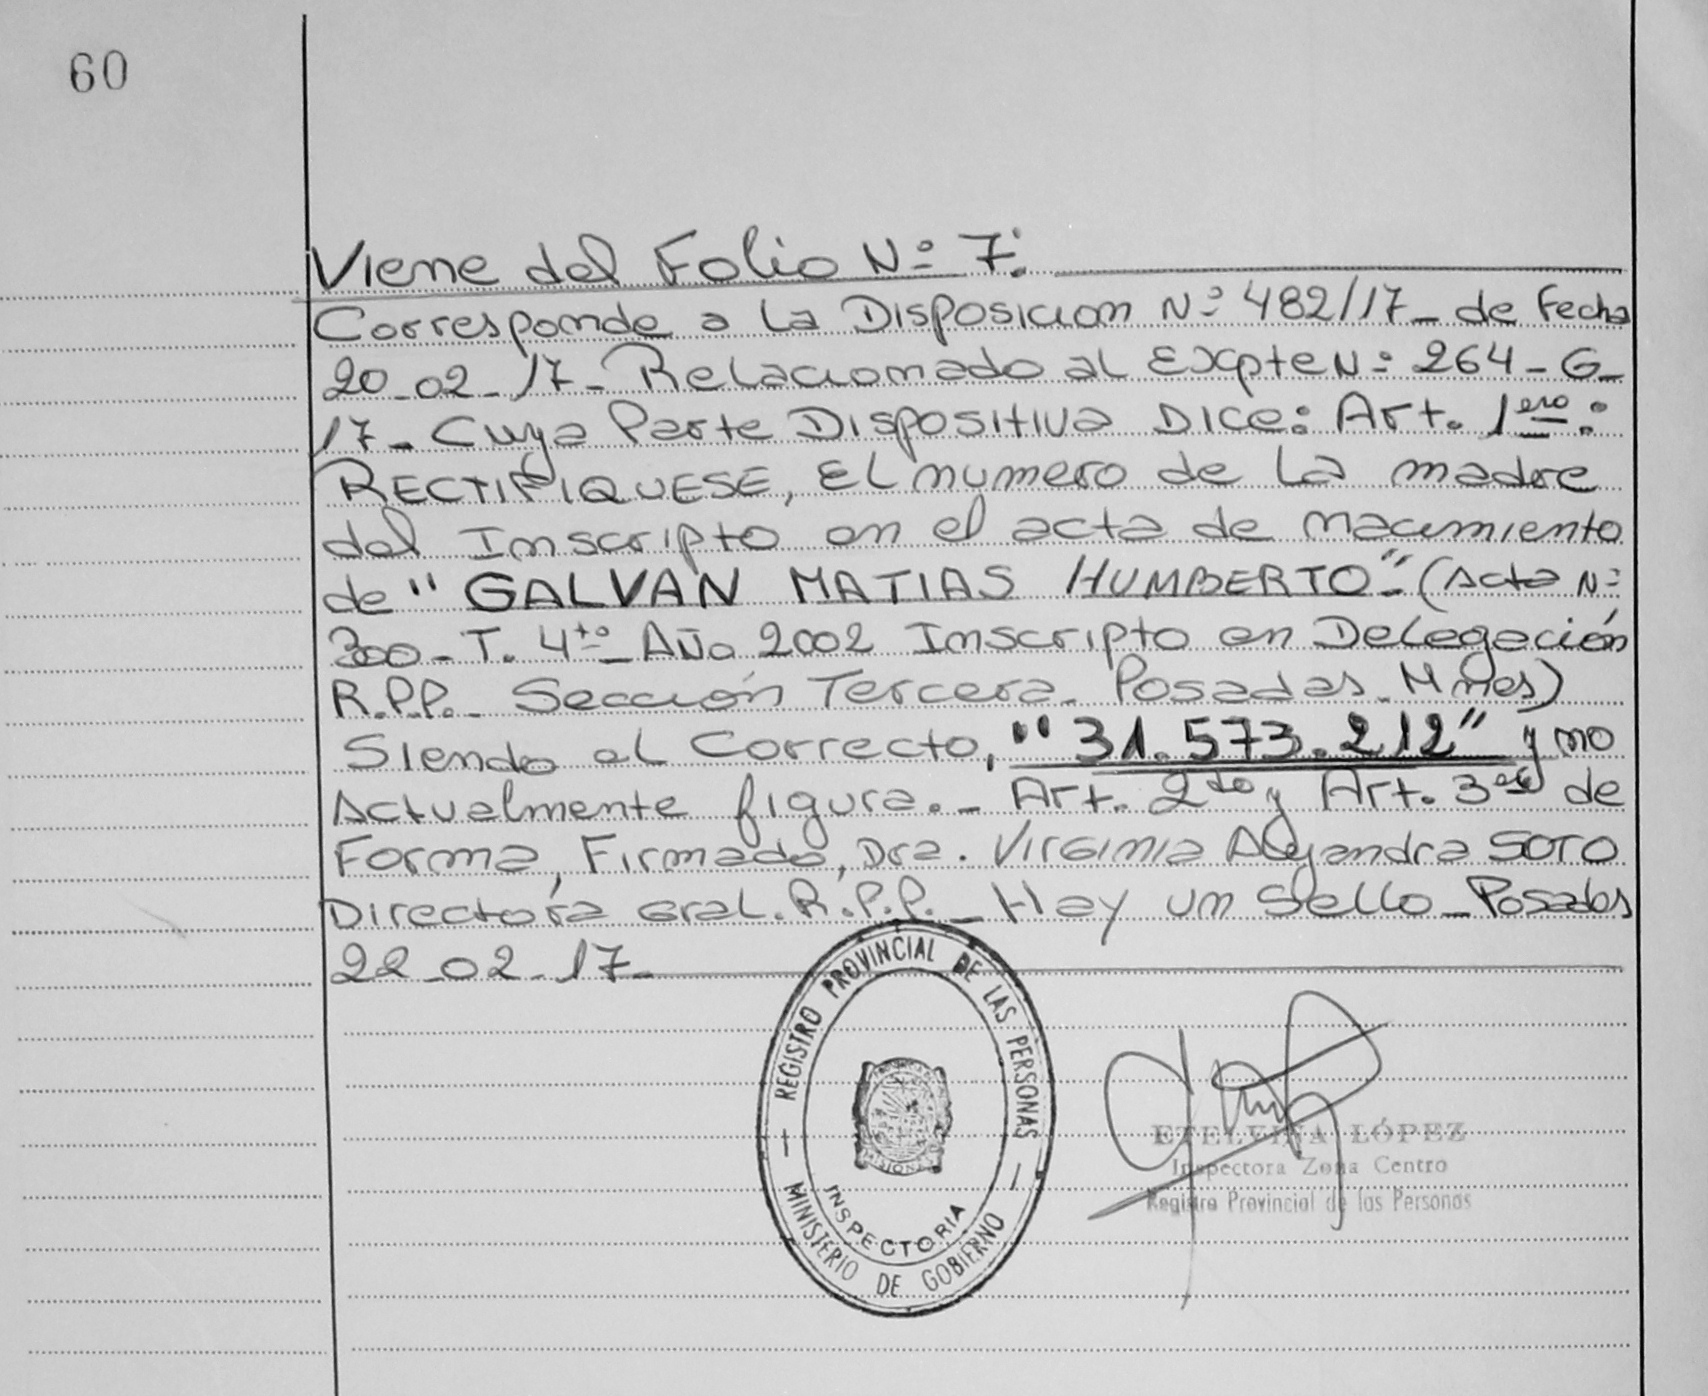 60
Viene del Folio Nº 7:
Corresponde a la Disposicion Nº 482/17_ de Fecha
20_02_17_ Relacionado al Expte Nº 264_G_
17_ Cuya Parte Dispositiva Dice: Art. 1ero:
RECTIFIQUESE, El numero de la madre
del Inscripto en el acta de nacimiento
de "GALVAN MATIAS HUMBERTO"_ (Acta Nº
300_ T. 4to_ Año 2002 Inscripto en Delegación
R.P.P._ Sección Tercera_ Posadas_ Mnes)
Siendo el Correcto, "31.573.212" y no
Actualmente figura._ Art. 2do y Art. 3ero de
Forma, Firmado, Dra. Virginia Alejandra SOTO
Directora Gral. R.P.P._ Hay un Sello_ Posadas
22_02_17_
REGISTRO PROVINCIAL DE LAS PERSONAS
MISIONES
INSPECTORIA
MINISTERIO DE GOBIERNO
ETELVINA LÓPEZ
Inspectora Zona Centro
Registro Provincial de las Personas